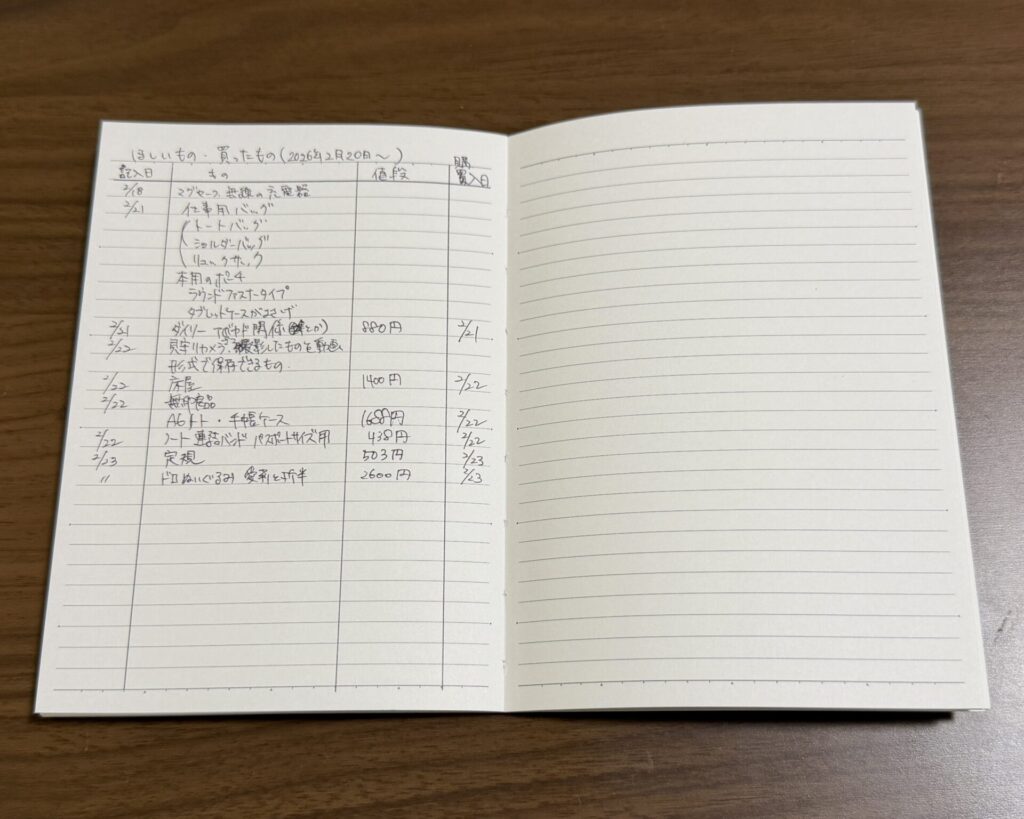 ほしいもの・買ったもの(2026年2月20日〜)
記入日 もの 値段 購入日
2/18 マグセーフ 無線の充電器
2/21 仕事用バッグ
トートバッグ
ショルダーバッグ
リュックサック
本用のポーチ
ラウンドファスナータイプ
タブレットケースがよさげ
2/21 ダイソー 関係 とか) 880円 2/21
2/22 見守りカメラ 撮影したものを動画
形式で保存できるもの
2/22 床屋 1400円 2/22
2/22 無印良品
A6ノート・手帳ケース 1688円 2/22
2/22 ノート連結バンド パスポートサイズ用 438円 2/22
2/23 定規 503円 2/23
〃 ドロぬいぐるみ と折半 2600円 2/23